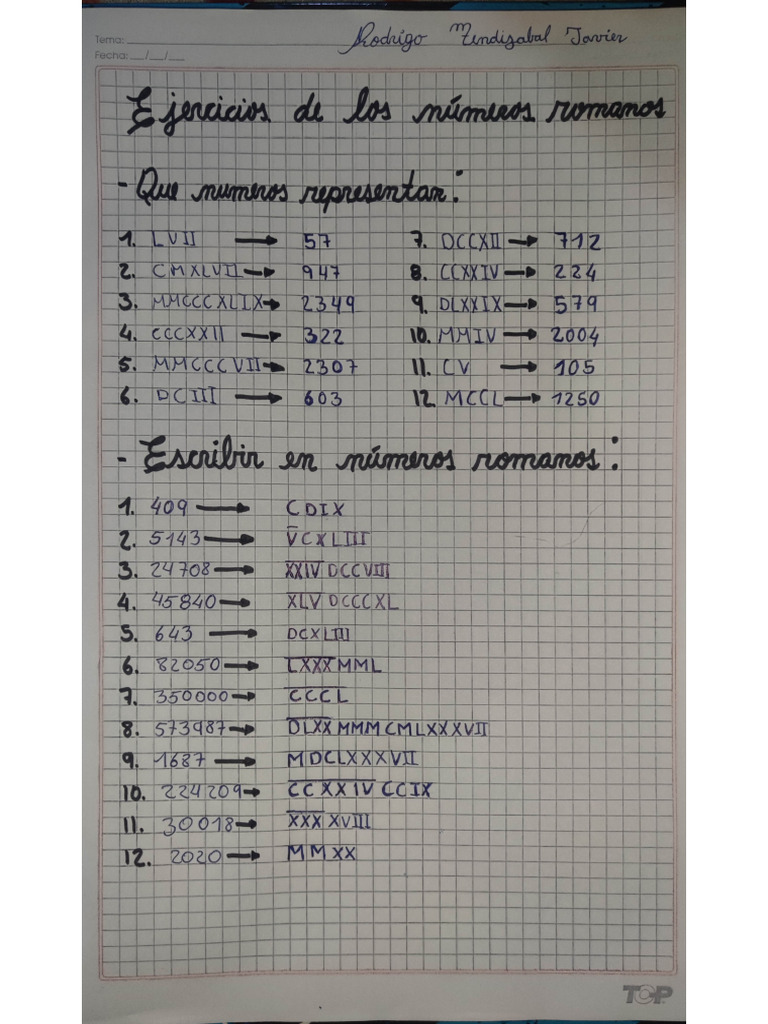 Tema:
Fecha: __/__/__
Rodrigo Mendizabal Javier
Ejercicios de los números romanos
- Que numeros representan:
1. LVII → 57
2. CMXLVII → 947
3. MMCCCXLIX → 2349
4. CCCXXII → 322
5. MMCCCVII → 2307
6. DCIII → 603
7. DCCXII → 712
8. CCXXIV → 224
9. DLXXIX → 579
10. MMIV → 2004
11. CV → 105
12. MCCL → 1250
- Escribir en números romanos:
1. 409 → CDIX
2. 5143 → V̅CXLIII
3. 24708 → X̅X̅I̅V̅DCCVIII
4. 45840 → X̅L̅V̅DCCCXL
5. 643 → DCXLIII
6. 82050 → L̅X̅X̅X̅MML
7. 350000 → C̅C̅C̅L̅
8. 573987 → D̅L̅X̅X̅MMMCMLXXXVII
9. 1687 → MDCLXXXVII
10. 224209 → C̅C̅X̅X̅I̅V̅CCIX
11. 30018 → X̅X̅X̅XVIII
12. 2020 → MMXX
TOP